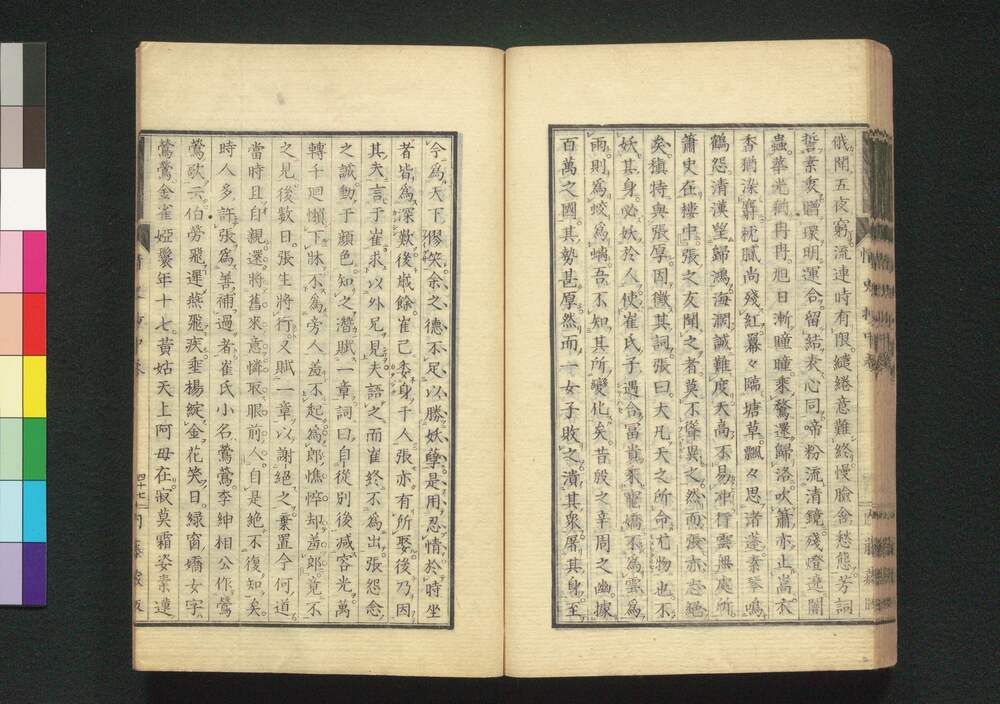 俄聞五夜窮流連時有限繾綣意難終慢臉含愁態芳詞
誓素衷贈環明運合留結表心同啼粉流清鏡殘燈遶闇
蟲華光猶冉冉旭日漸瞳瞳乘鶩還歸洛吹簫亦止嵩衣
香猶染麝枕膩尚殘紅冪々臨塘草飄々思渚蓬素琴鳴
鶴怨清漢望歸鴻海濶誠難度天高不易冲行雲無處所
簫史在樓中張之友聞之者莫不聳異之然而張亦志絕
矣稹特與張厚因徵其詞張曰大凡天之所命尤物也不
妖其身必妖於人使崔氏子遇合富貴乘寵嬌不為雲為
雨則為蛟為螭吾不知其所變化矣昔殷之辛周之幽據
百萬之國其勢甚厚然而一女子敗之潰其衆屠其身至
今為天下僇笑余之德不足以勝妖孽是用忍情於時坐
者皆為深歎後歲餘崔已委身于人張亦有所娶後乃因
其夫言于崔求以外兄見夫語之而崔終不為出張怨念
之誠動于顏色知之潛賦一章詞曰自從別後減容光萬
轉千廻懶下牀不為旁人羞不起為郎憔悴却羞郎竟不
之見後數日張生將行又賦一章以謝絕之棄置今何道
當時且自親還將舊來意憐取眼前人自是絕不復知矣
時人多許張為善補過者崔氏小名鶯鶯李紳相公作鶯
鶯歌云伯勞飛遲燕飛疾垂楊綻金花笑日綠窗嬌女字
鶯鶯金雀婭鬟年十七黃姑天上阿母在寂莫霜姿素蓮